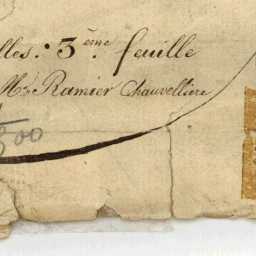 lles: 3ème. feuille
Mr Ramier Chauvelliere
500